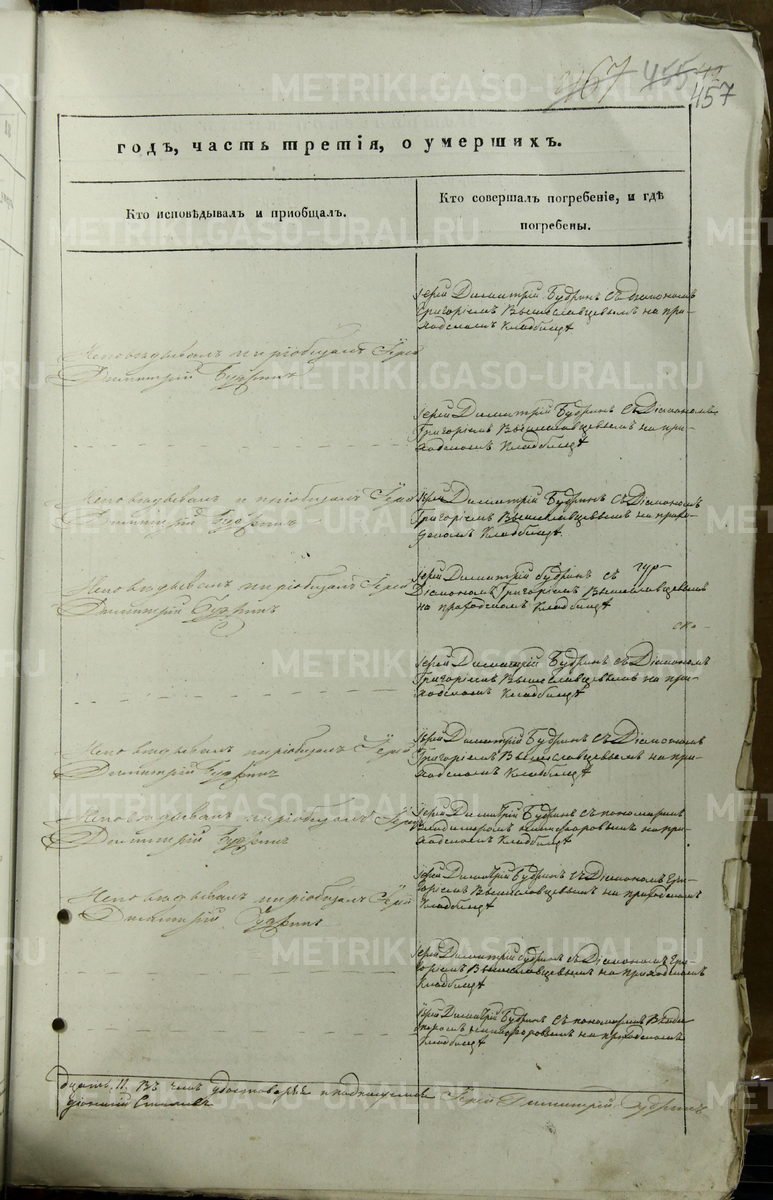 467 455
457
METRIKI.GASO-URAL.RU
годъ, часть третія, о умершихъ.
Кто исповѣдывалъ и пріобщалъ.
Кто совершалъ погребеніе, и гдѣ
погребены.
Іерей Димитрій Будринъ съ Діакономъ
Григоріемъ Вышеславцевымъ на при-
ходскомъ кладбищѣ
Исповѣдывалъ и пріобщалъ Іерей
Димитрій Будринъ
Іерей Димитрій Будринъ съ Діакономъ
Григоріемъ Вышеславцевымъ на при-
ходскомъ кладбищѣ
Исповѣдывалъ и пріобщалъ Іерей
Димитрій Будринъ
Іерей Димитрій Будринъ съ Діакономъ
Григоріемъ Вышеславцевымъ на прихо-
дскомъ кладбищѣ
Исповѣдывалъ и пріобщалъ Іерей
Димитрій Будринъ
Іерей Димитрій Будринъ съ
Діакономъ Григоріемъ Вышеславцевымъ
на приходскомъ кладбищѣ
Іерей Димитрій Будринъ съ Діакономъ
Григоріемъ Вышеславцевымъ на при-
ходскомъ кладбищѣ
Исповѣдывалъ и пріобщалъ Іерей
Димитрій Будринъ
Іерей Димитрій Будринъ съ Діакономъ
Григоріемъ Вышеславцевымъ на при-
ходскомъ кладбищѣ
Исповѣдывалъ и пріобщалъ Іерей
Димитрій Будринъ
Іерей Димитрій Будринъ съ пономаремъ
Владимиромъ Никифоровымъ на при-
ходскомъ кладбищѣ
Исповѣдывалъ и пріобщалъ Іерей
Димитрій Будринъ
Іерей Димитрій Будринъ съ Діакономъ Гри-
горіемъ Вышеславцевымъ на приходскомъ
кладбищѣ
Іерей Димитрій Будринъ съ Діакономъ Гри-
горіемъ Вышеславцевымъ на приходскомъ
кладбищѣ
Іерей Димитрій Будринъ съ пономаремъ Влади
миромъ Никифоровымъ на приходскомъ
кладбищѣ
11. Въ чемъ и подписуемся Іерей Димитрій Будринъ